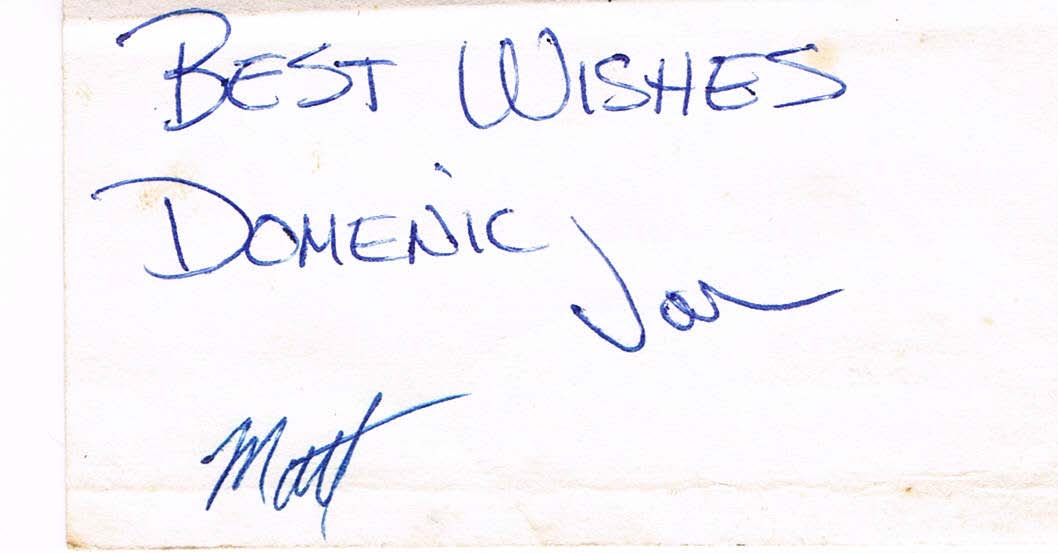 BEST WISHES
DOMENIC
Jon
Matt